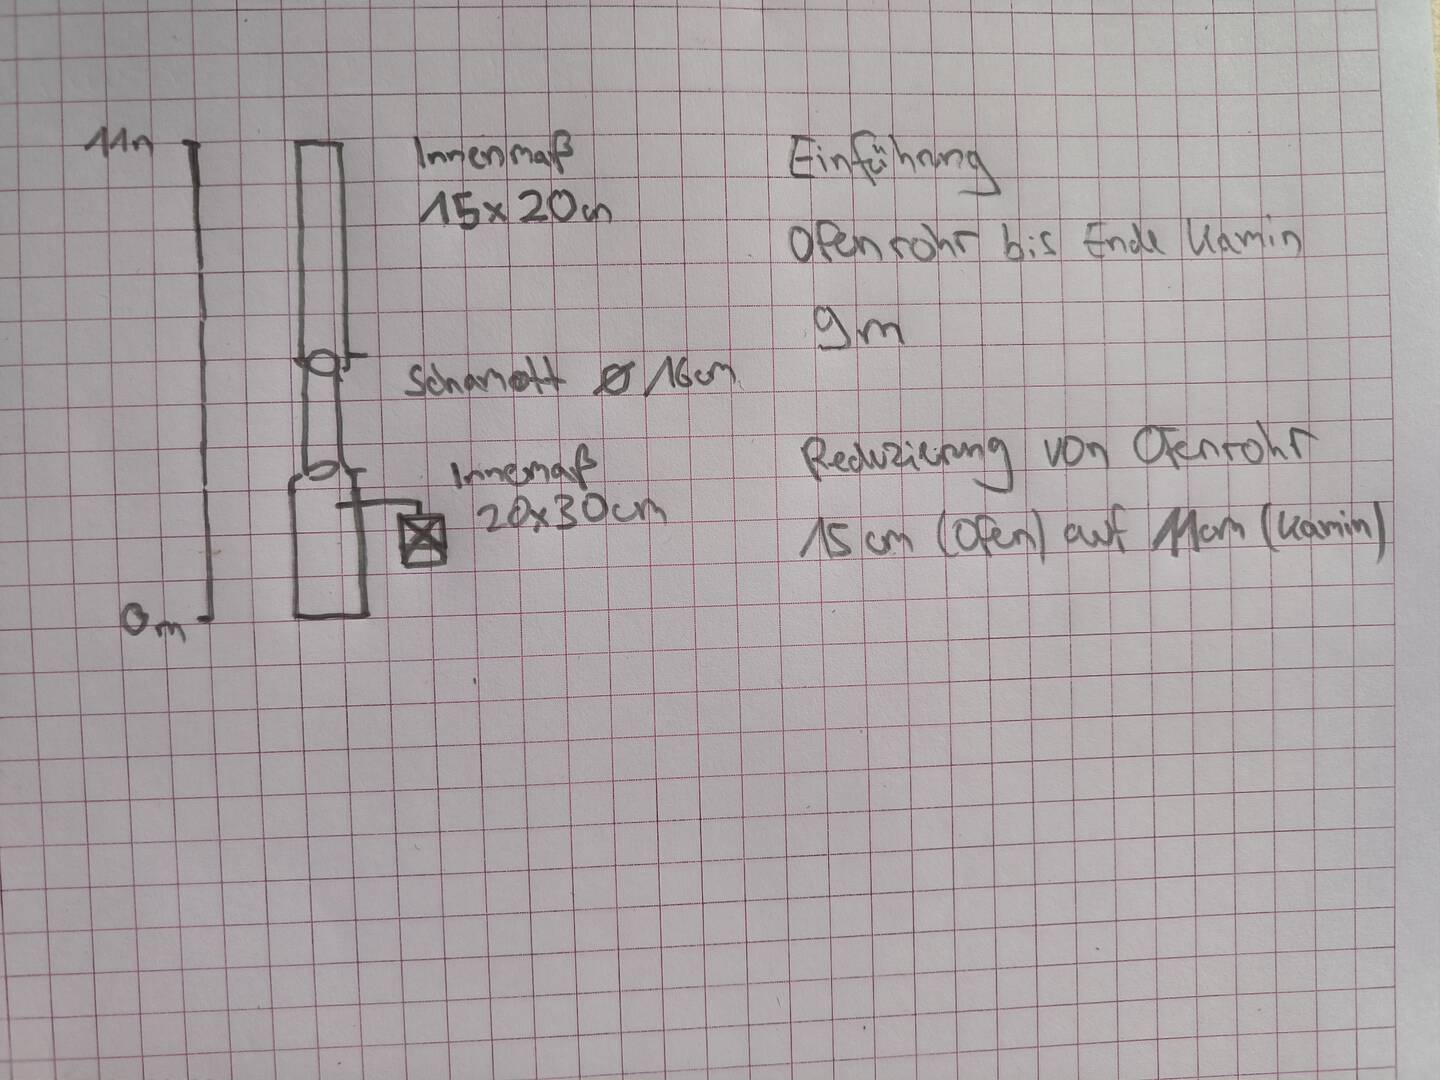 11m
Innenmaß
15x20cm
Schamott ø 16cm
Innemaß
20x30cm
0m
Einführung
Ofenrohr bis Ende Kamin
9m
Reduzierung von Ofenrohr
15cm (Ofen) auf 11cm (Kamin)